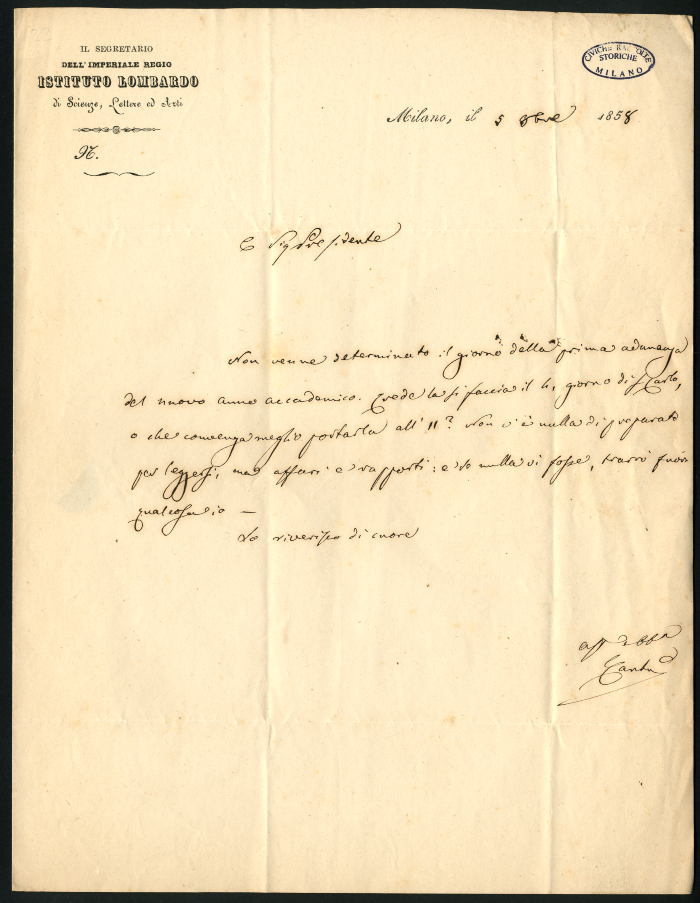 IL SEGRETARIO
DELL'IMPERIALE REGIO
ISTITUTO LOMBARDO
di Scienze, Lettere ed Arti
N.
CIVICHE RACCOLTE
STORICHE
MILANO
Milano, il 5 8bre 1858
Sig Presidente
Non venne determinato il giorno della prima adunanza
del nuovo anno accademico. Crede la si faccia il 4, giorno di S. Carlo,
o che convenga meglio portarla all' 11? Non v'è nulla di preparato
per leggersi, ma affari e rapporti: e se nulla vi fosse, trarrò fuori
qualcosa io —
La riverisco di cuore
aff
Cantù